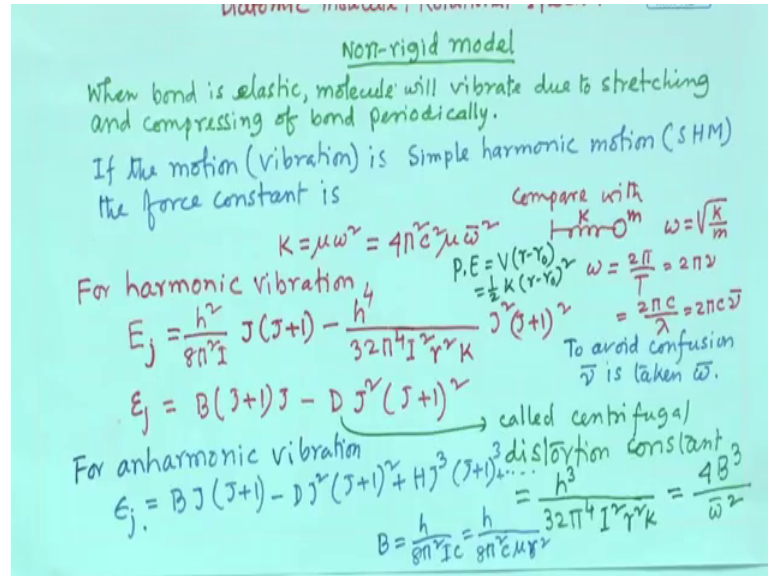 Diatomic molecule, Rotational
Non-rigid model
When bond is elastic, molecule will vibrate due to stretching
and compressing of bond periodically.
If the motion (vibration) is Simple harmonic motion (SHM)
the force constant is
Compare with
K m
ω = √(K/m)
K = μω² = 4π²c²μω̄²
P.E = V(r-r₀)
= ½ K (r-r₀)²
ω = 2π/T = 2πν
= 2πc/λ = 2πcν̄
To avoid confusion
ν̄ is taken ω̄.
For harmonic vibration,
E_j = h²/8π²I J(J+1) - h⁴/32π⁴I²r²K J²(J+1)²
ε_j = B(J+1)J - DJ²(J+1)²
called centrifugal
distortion constant
= h³/32π⁴I²r²K = 4B³/ω̄²
For anharmonic vibration
ε_j. = BJ(J+1) - DJ²(J+1)² + HJ³(J+1)³+....
B = h/8π²Ic = h/8π²cμr²